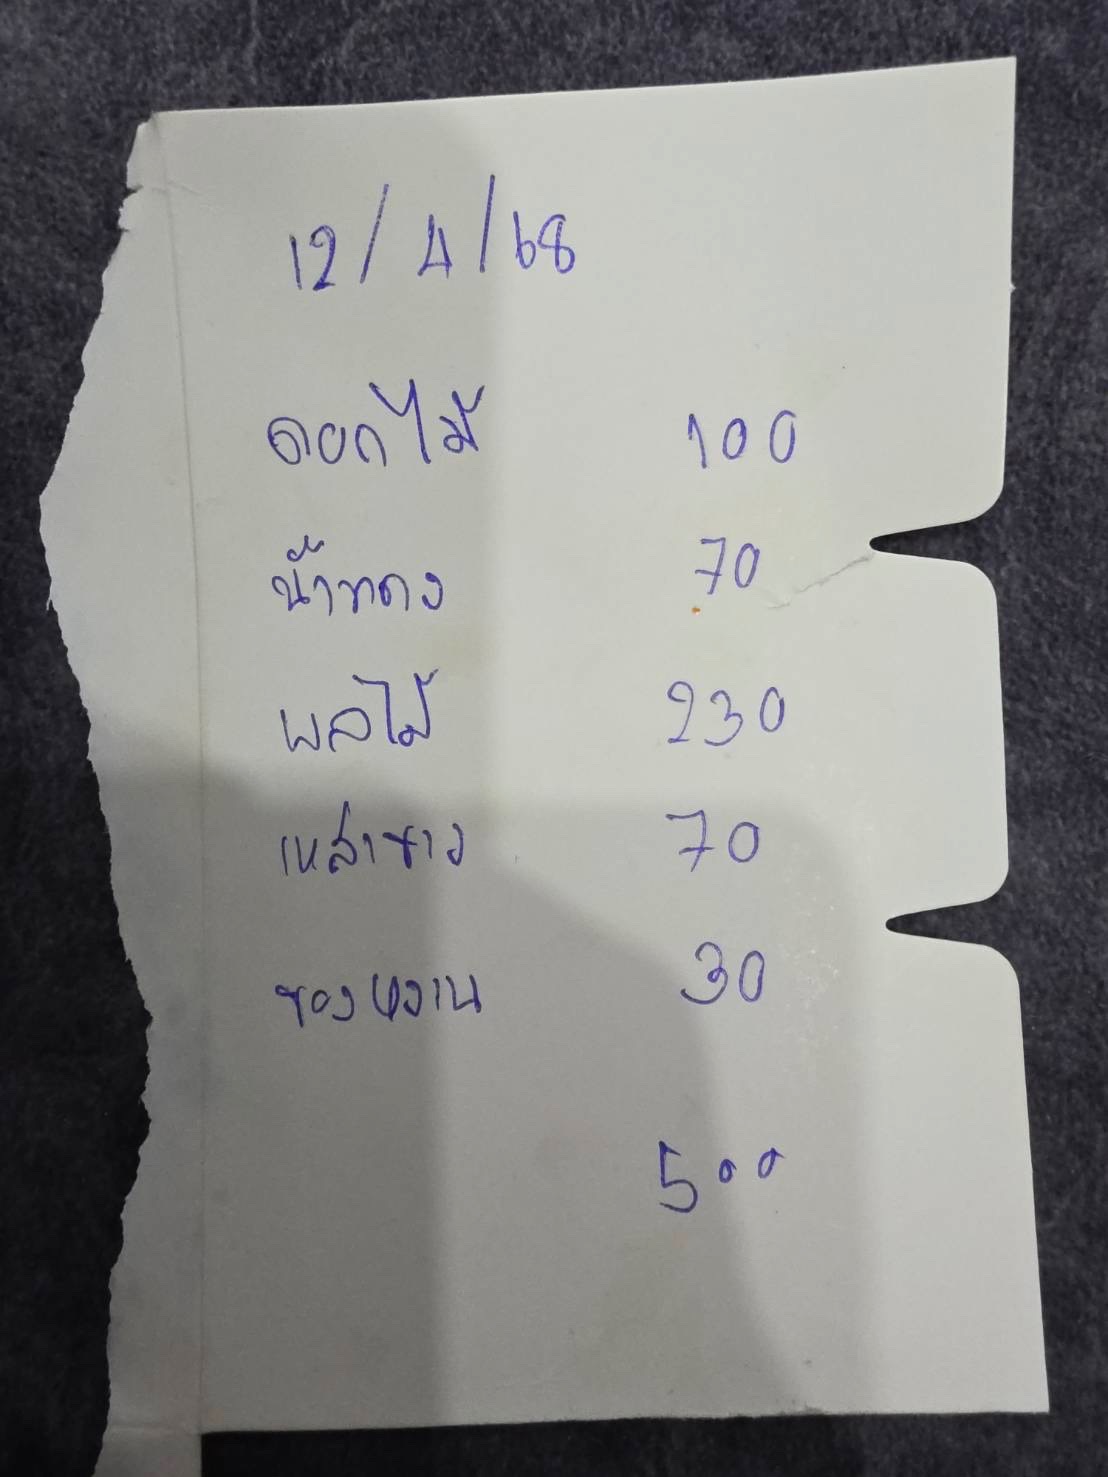 12/4/68
ดอกไม้ 100
น้ำแดง 70
ผลไม้ 230
เหล้าขาว 70
ของหวาน 30
500